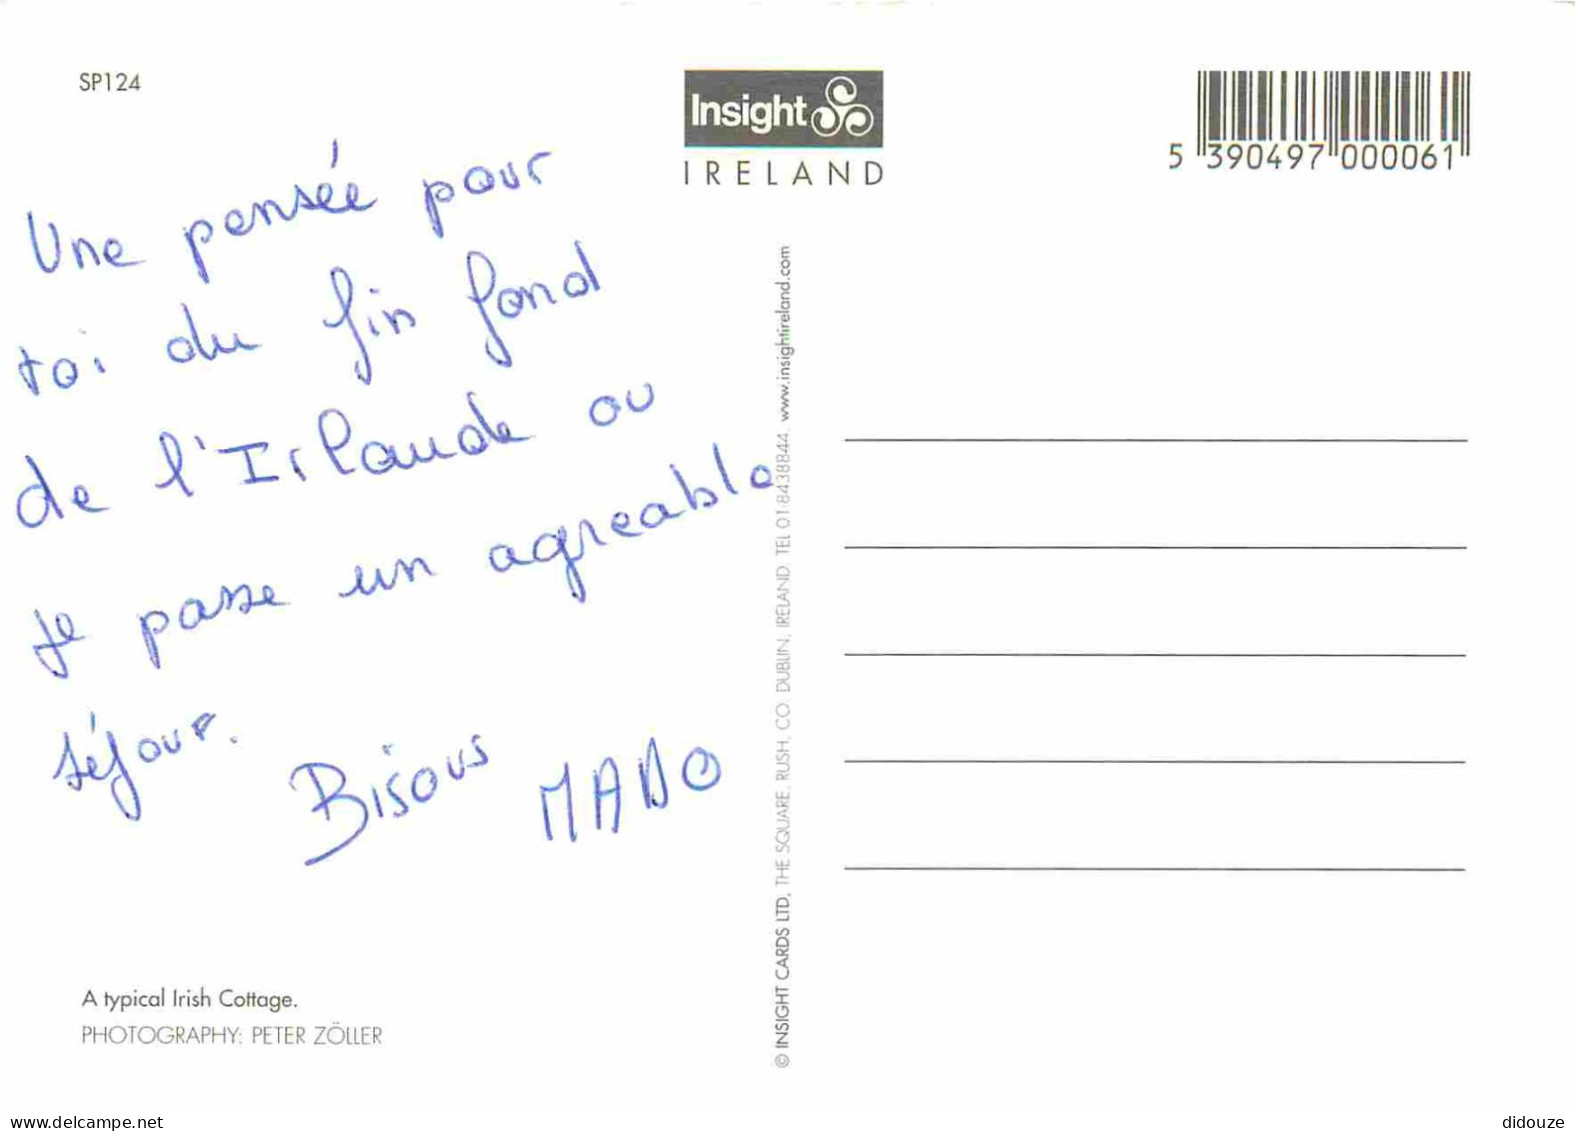 SP124
Insight
IRELAND
5 390497 000061
Une pensée pour
toi du fin fond
de l'Irlande ou
je passe un agreable
séjour.
Bisous MADO
© INSIGHT CARDS LTD, THE SQUARE, RUSH, CO. DUBLIN, IRELAND. TEL 01-8438844. www.insightireland.com
A typical Irish Cottage.
PHOTOGRAPHY: PETER ZÖLLER
delcampe.net
didouze